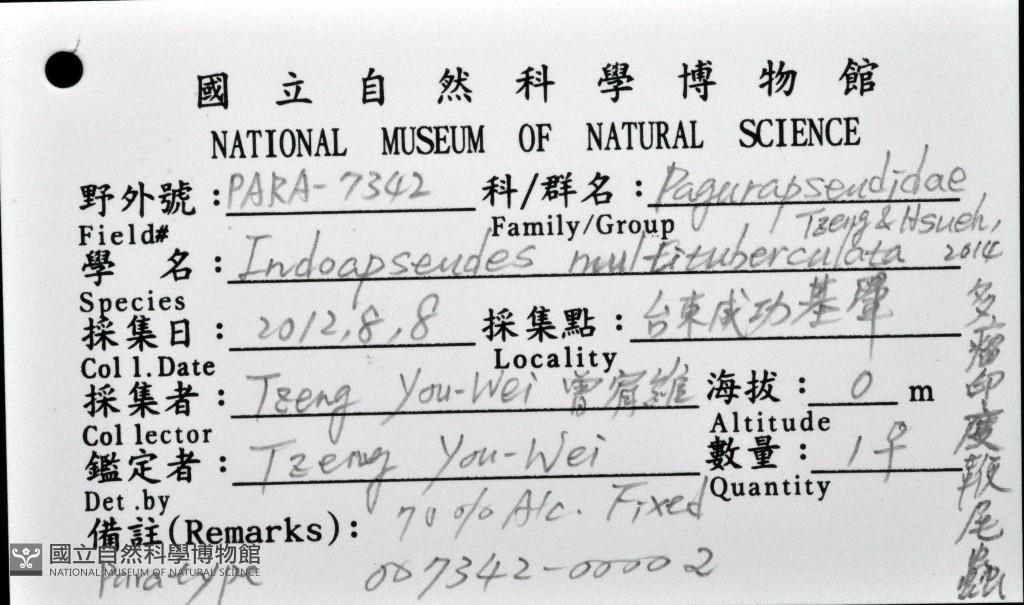 國立自然科學博物館
NATIONAL MUSEUM OF NATURAL SCIENCE
野外號：PARA-7342 科/群名：Pagurapseudidae
Field# Family/Group Tzeng & Hsueh,
學 名：Indoapseudes multituberculata 2014
Species
採集日：2012,8,8 採集點：台東成功基翬
Coll.Date Locality
採集者：Tzeng You-Wei 曾宥維 海拔：0 m
Collector Altitude
鑑定者：Tzeng You-Wei 數量：1♀
Det.by Quantity
備註(Remarks)：70% Alc. Fixed
Paratype 007342-00002
多瘤印度鞭尾蟲
國立自然科學博物館
NATIONAL MUSEUM OF NATURAL SCIENCE